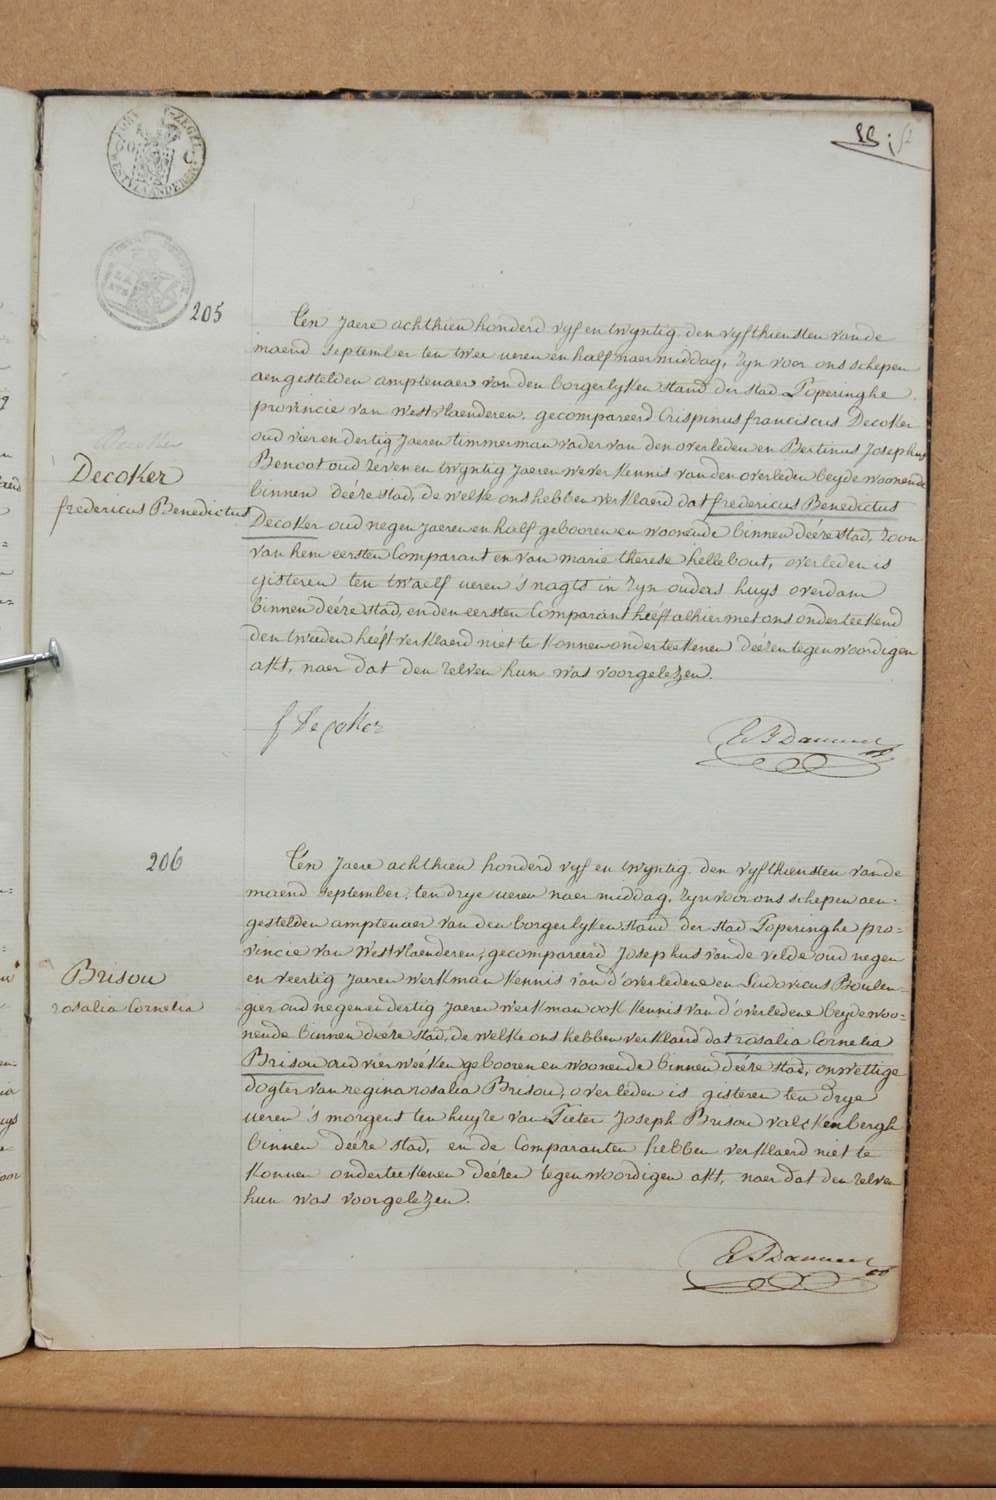 205
Ten Jaere achthien honderd vyf en twyntig den vyfthiensten van de
maend September ten twee ueren en half naer middag, Zyn voor ons schepen
aengestelden amptenaer van den borgerlyken stand der stad Poperinghe
provincie van Westvlaenderen, gecompareerd Crispinus franciscus Decoker
oud vier en dertig Jaeren timmerman vader van den overleden en Bertinus Josephus
Benoot oud zeven en twyntig Jaeren wever kennis van den overleden beyde woonende
Decoker
fredericus Benedictus
binnen dééze stad, de welke ons hebben verklaerd dat fredericus Benedictus
Decoker oud negen Jaeren en half gebooren en woonende binnen déeze stad, zoon
van hem eersten Comparant en van marie therese hellebout, overleden is
gisteren ten twaelf ueren 's nagts in Zyn ouders huys overdam
binnen déeze stad, en den eersten Comparant hééft alhier met ons onderteekend
den tweeden hééft verklaerd niet te konnen onderteekenen déézen tegenwoordigen
akt, naer dat den zelven hun was voorgelezen.
f Decoker
206
Ten Jaere achthien honderd vyf en twyntig den vyfthiensten van de
maend September, ten drye ueren naer middag, Zyn voor ons schepen aen=
gestelden amptenaer van den borgerlyken stand der stad Poperinghe pro=
vincie van Westvlaenderen, gecompareerd Josephus van de velde oud negen
en veertig Jaeren werkman kennis van d'overledene en Ludovicus Boulen=
gier oud negen en dertig Jaeren werkman ook kennis van d'overledene beyde woo=
Brisou
rosalia Cornelia
nende binnen déeze stad, de welke ons hebben verklaerd dat rosalia Cornelia
Brisou oud vier wééken gebooren en woonende binnen déeze stad, onwettige
dogter van regina rosalia Brisou, overleden is gisteren ten drye
ueren 's morgens ten huyze van Pieter Joseph Brisou valckenbergh
binnen déeze stad, en de Comparanten hebben verklaerd niet te
konnen onderteekenen déézen tegenwoordigen akt, naer dat den zelven
hun was voorgelezen.